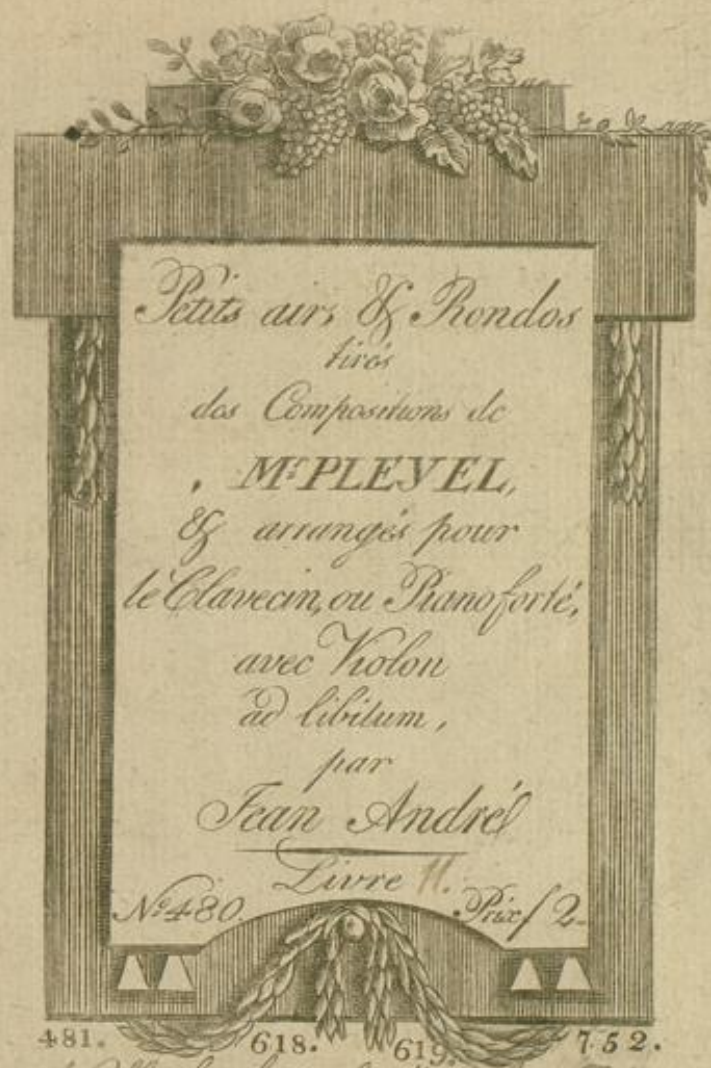 Petits airs & Rondos
tirés
des Compositions de
Mr. PLEYEL,
& arrangés pour
le Clavecin, ou Pianoforté,
avec Violon
ad libitum,
par
Jean André
Livre II.
No. 480. Prix f 2.
481. 618. 619. 752.